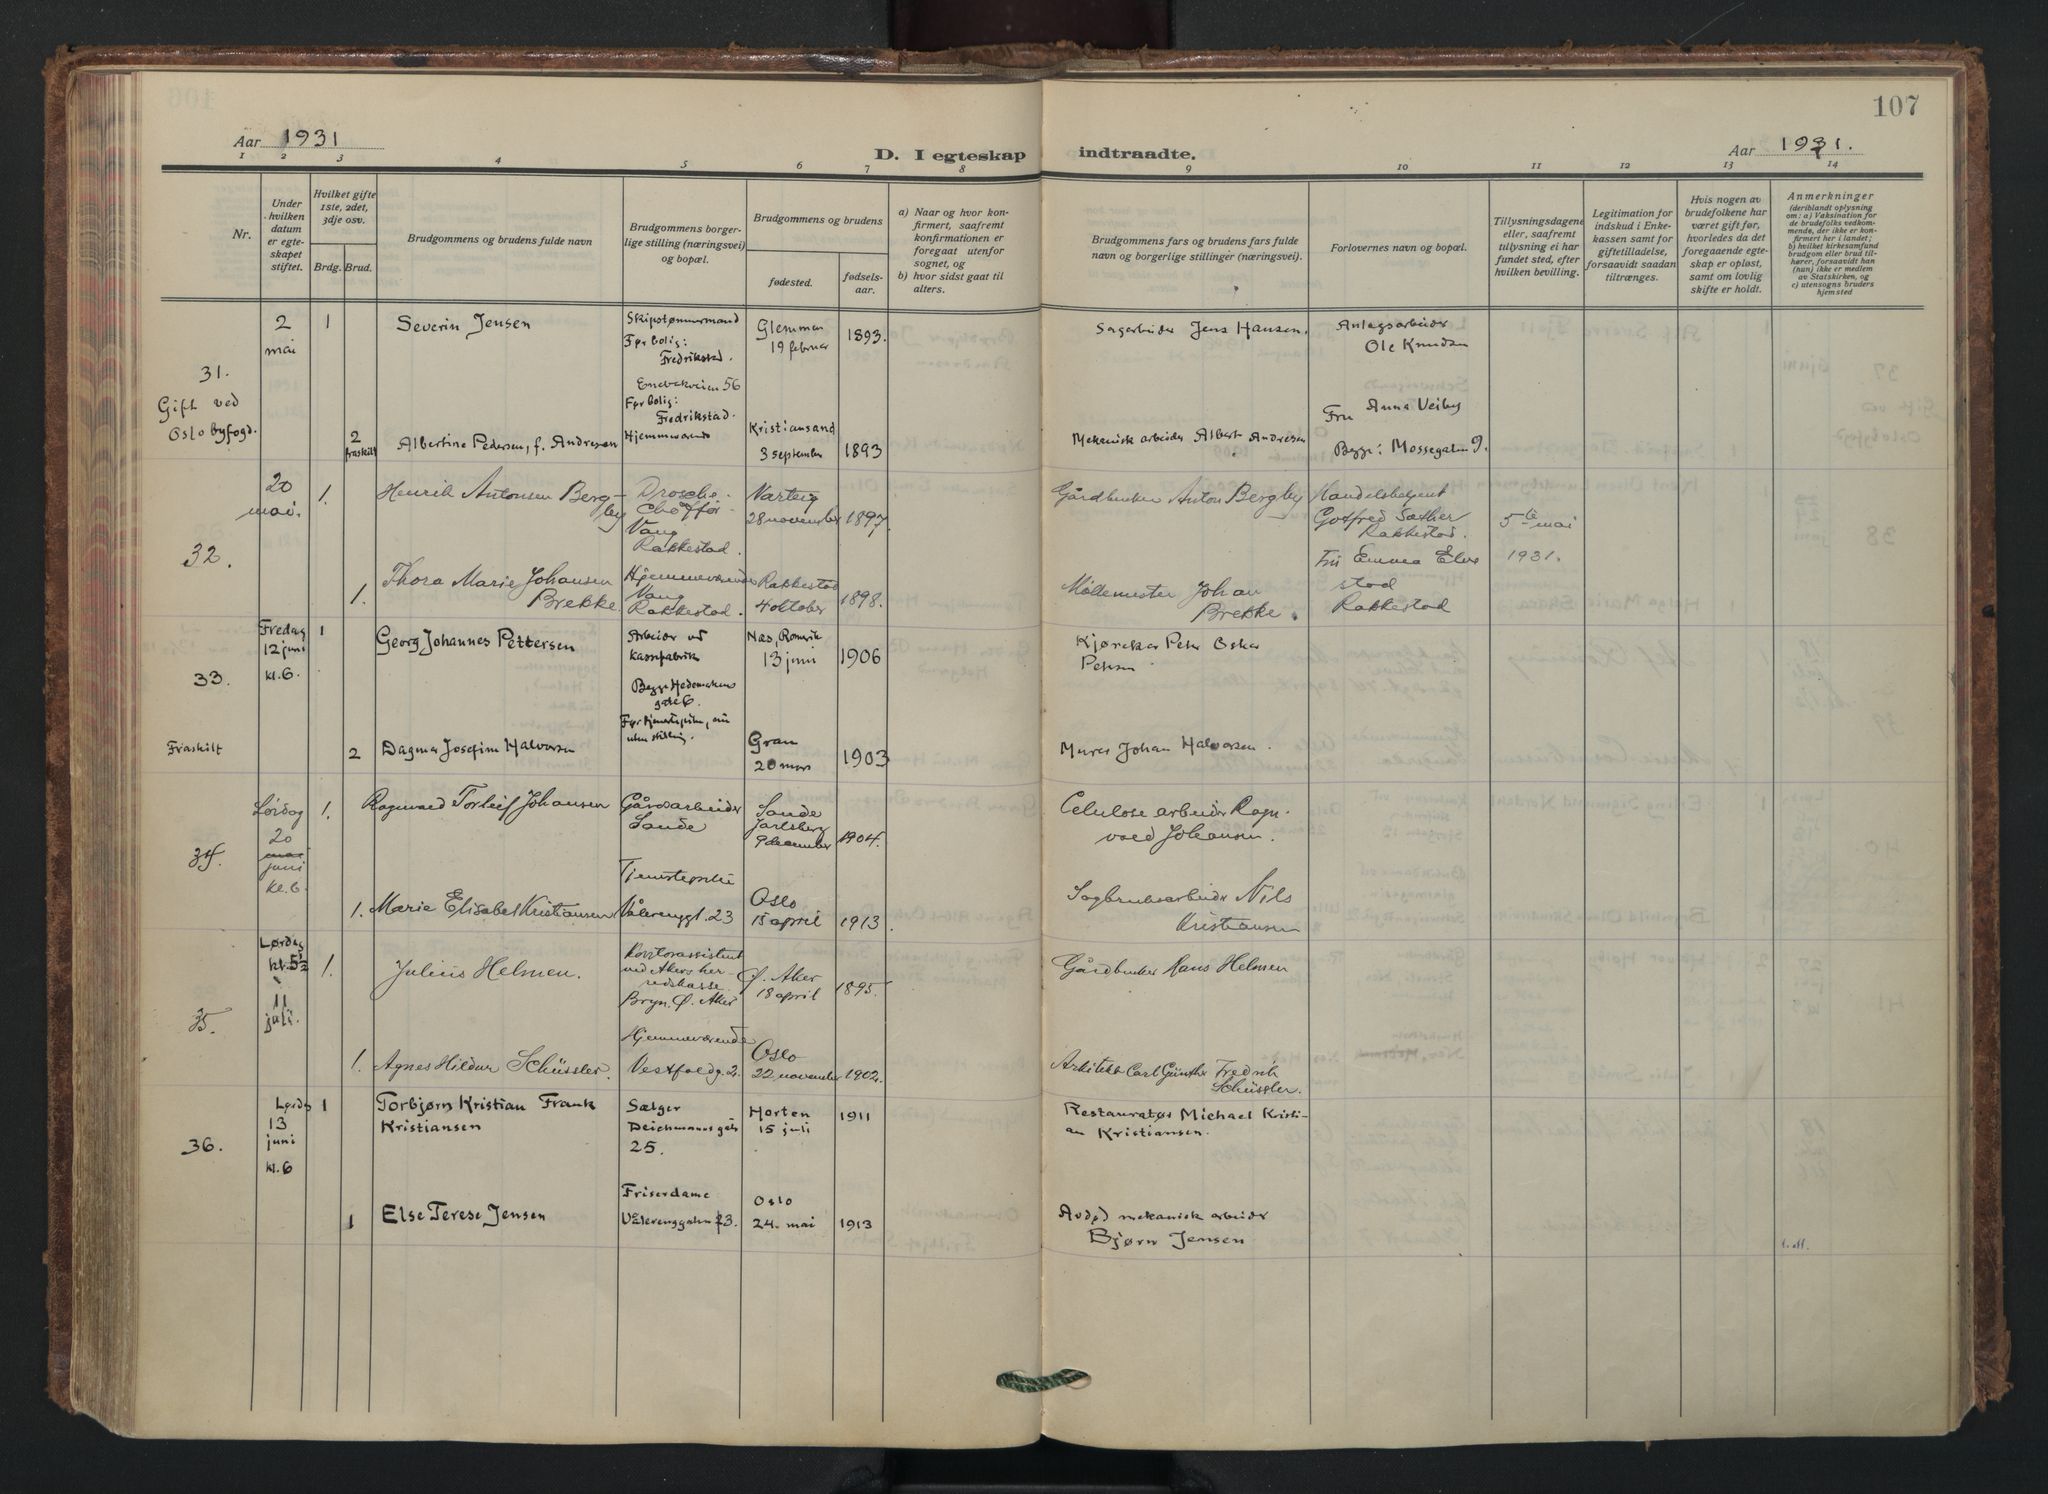 107
Aar 1931
D. I egteskap indtraadte.
Aar 1931.
1 2 3 4 5 6 7 8 9 10 11 12 13 14
Nr.
Under
hvilken
datum
er egte-
skapet
stiftet.
Hvilket gifte
1ste, 2det,
3dje osv.
Brdg. Brud.
Brudgommens og brudens fulde navn
Brudgommens borger-
lige stilling (næringsvei)
og bopæl.
Brudgommens og brudens
fødested.
fødsels-
aar.
a) Naar og hvor kon-
firmert, saafremt
konfirmationen er
foregaat utenfor
sognet, og
b) hvor sidst gaat til
alters.
Brudgommens fars og brudens fars fulde
navn og borgerlige stillinger (næringsvei).
Forlovernes navn og bopæl.
Tillysningsdagene
eller, saafremt
tillysning ei har
fundet sted, efter
hvilken bevilling.
Legitimation for
indskud i Enke-
kassen samt for
giftetilladelse,
forsaavidt saadan
tiltrænges.
Hvis nogen av
brudefolkene har
været gift før,
hvorledes da det
foregaaende egte-
skap er opløst,
samt om lovlig
skifte er holdt.
Anmerkninger
(deriblandt oplysning
om: a) Vaksination for
de brudefolks vedkom-
mende, der ikke er kon-
firmert her i landet;
b) hvilket kirkesamfund
brudgom eller brud til-
hører, forsaavidt han
(hun) ikke er medlem
av Statskirken, og
c) utensogns bruders
hjemsted
31.
Gift ved
Oslo byfogd.
2
mai
1
Severin Jensen
Skipstømmermand
Før bolig:
Fredrikstad.
Glemmen
19 februar
1893.
Sagarbeider Jens Hansen.
Anlegsarbeider
Ole Knudsen
2
fraskilt
Albertine Pedersen, f. Andresen
Enebakveien 56
Før bolig:
Fredrikstad.
Hjemmeværende
Kristiansand
3 september
1893
Mekanisk arbeider Albert Andresen
Fru Anna Veiby
Begge: Mossegaten 9.
32.
20
mai.
1.
Henrik Antonsen Berg-
by
Drosche-
chaffør
Vang
Rakkestad.
Varteig
28 november
1897.
Gårdbruker Anton Bergby
Handelsbetjent
Gotfred Sæther
Rakkestad.
5te mai
1931.
1.
Thora Marie Johansen
Brekke.
Hjemmeværende
Vang
Rakkestad.
Rakkestad
4 oktober
1898.
Møllemester Johan
Brekke.
Fru Emma Elve
stad
Rakkestad
33.
Fredag
12 juni
kl. 6.
1
Georg Johannes Pettersen
Arbeider ved
kassefabrik
Begge Hedemarkens
gate 6.
Næs, Romerik
13 juni
1906
Kjørekar Peter Oskar
Petersen
Fraskilt
2
Dagmar Josefine Halvorsen
Før tjenestepike, nu
uten stilling.
Gran
20 mars
1903
Murer Johan Halvorsen.
34.
Lørdag
20
juni
kl. 6.
1.
Ragnvald Torleif Johansen
Gårdsarbeider
Sande
Sande
Jarlsberg
9 december
1904.
Celulosearbeider Ragn-
vald Johansen.
1.
Marie Elisabet Kristiansen
Tjenestepike
Vålerenggt. 23
Oslo
15 april
1913
Sagbruksarbeider Nils
Kristiansen
35.
Lørdag
kl. 5½
11
juli.
1.
Julius Helmen.
Kontorassistent
ved Akers her-
redskasse
Bryn. Ø. Aker
Ø. Aker
18 april
1895.
Gårdbruker Hans Helmen
1.
Agnes Hildur Schüssler.
Hjemmeværende
Vestfoldg. 2.
Oslo
22. november
1902.
Arkitekt Carl Günther Fredrik
Schüssler.
36.
Lørdag
13
juni
kl. 6
1
Torbjørn Kristian Frank
Kristiansen
Sælger
Deichmannsgate
25.
Horten
15 juli
1911
Restauratør Michael Kristi-
an Kristiansen.
1
Else Terese Jensen
Friserdame
Vålerenggaten 23.
Oslo
24. mai
1913
Avdød mekanisk arbeider
Bjørn Jensen